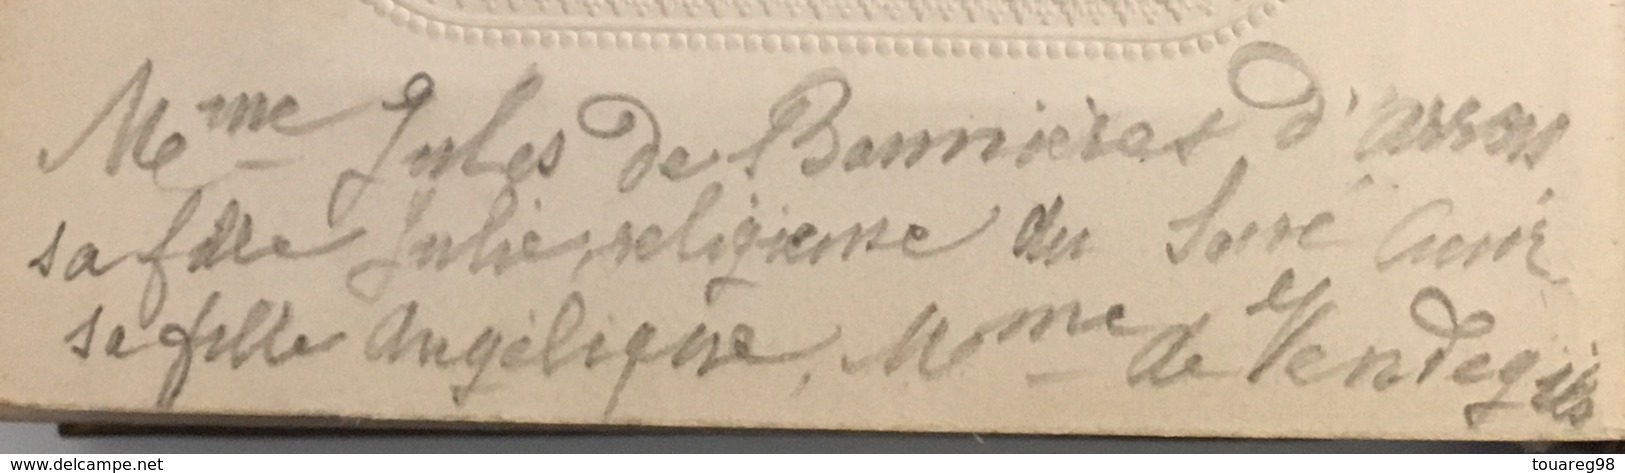 Mme Jules de Bonnières d'
sa fille Julie, religieuse du Sacré Cœur
sa fille Angélique, Mme de Vendegies
www.delcampe.net
touareg98